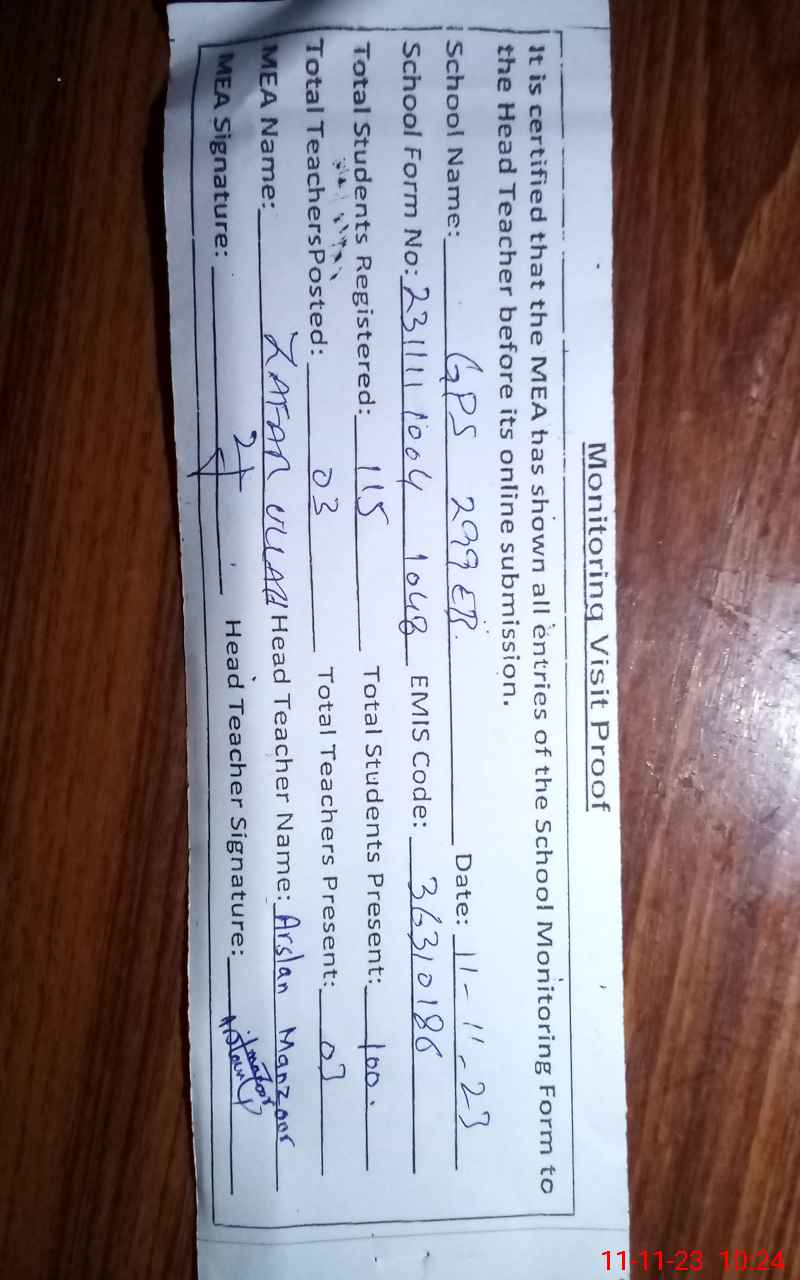 Monitoring Visit Proof
It is certified that the MEA has shown all entries of the School Monitoring Form to
the Head Teacher before its online submission.
School Name: GPS 299 EB. Date: 11-11-23
School Form No: 231111 1004 1048 EMIS Code: 36310186
Total Students Registered: 115 Total Students Present: 100.
Total TeachersPosted: 03 Total Teachers Present: 03
MEA Name: ZAFAR ULLAH Head Teacher Name: Arslan Manzoor
MEA Signature: Head Teacher Signature:
11-11-23 10:24